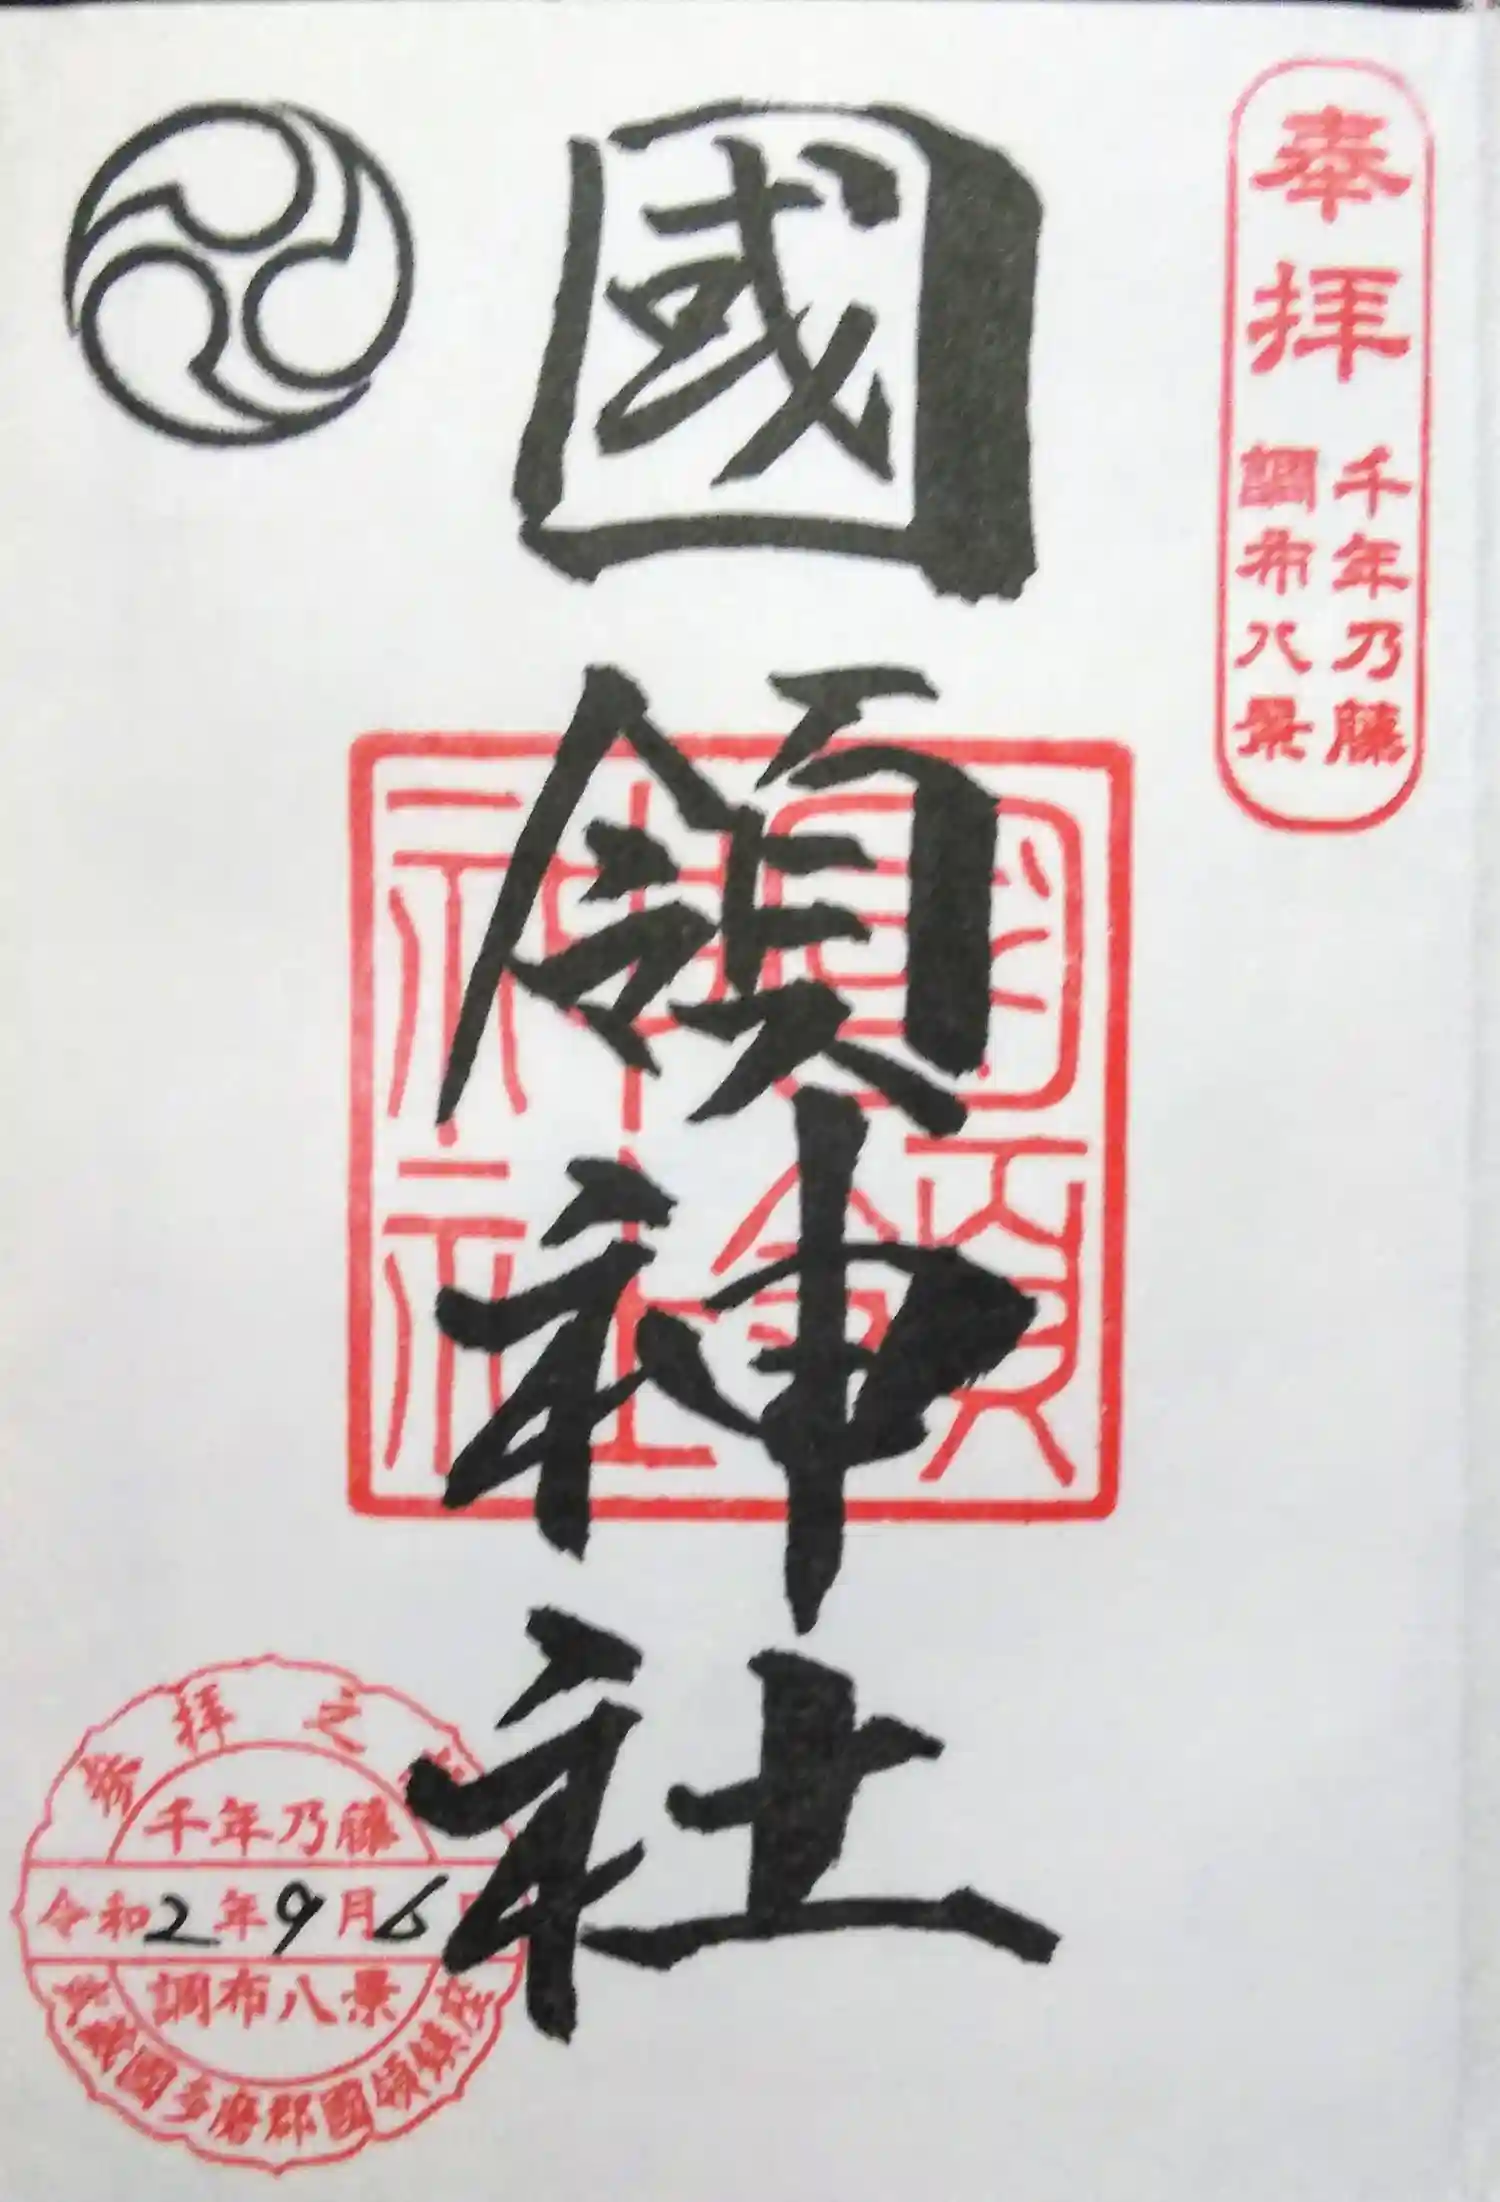 奉拝
千年乃藤
調布八景
國領神社
國領神社
参拝之
千年乃藤
令和2年9月6日
調布八景
國多磨郡國領鎮座